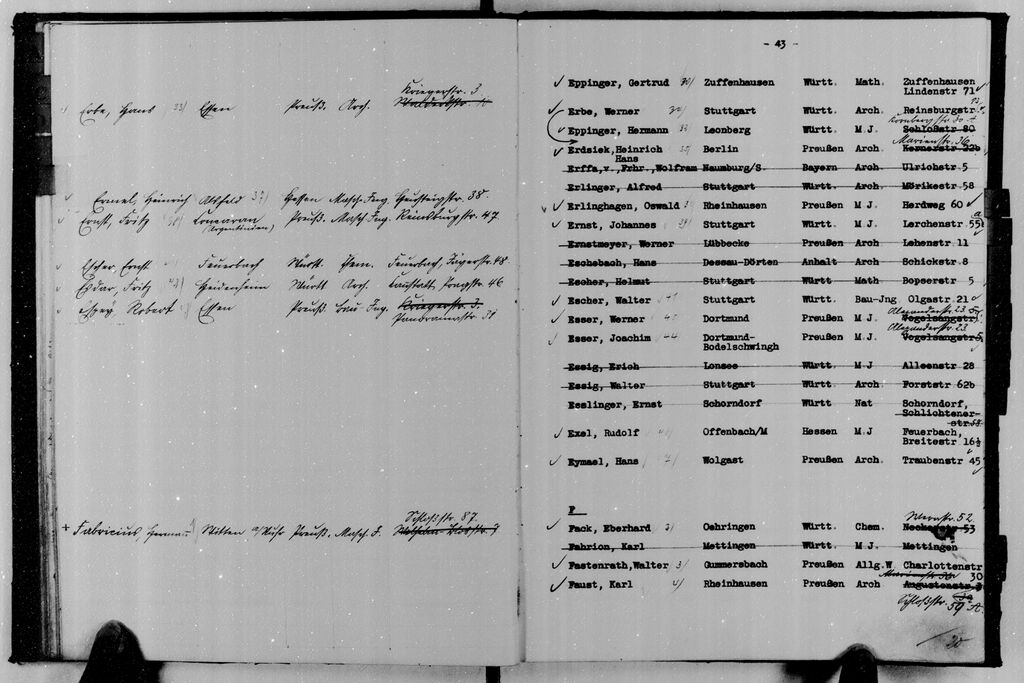 Kriegerstr. 3
Erbe, Hans 33) Essen Preuß. Arch.
Ermel, Heinrich Alsfeld 37) Hessen Masch. Ing. Heusteigstr. 38.
Ernst, Fritz Preuß. Masch. Ing. Reinsburgstr. 47
(Argentinien)
Escher, Ernst Feuerbach Württ. Chem. Feuerbach, Jägerstr. 48
Fritz Heidenheim Württ Arch. Cannstatt, Pragstr. 46
Robert Essen Preuß. Bau Ing. Krieger str. 3.
Panoramastr. 31
Schloßstr. 87.
+ Fabricius Herman Witten a/Ruhr Preuß. Masch. I.
- 43 -
Eppinger, Gertrud 30/ Zuffenhausen Württ. Math. Zuffenhausen
Lindenstr 71
Erbe, Werner Stuttgart Württ. Arch. Reinsburgstr.
Eppinger, Hermann Leonberg Württ. M.J. Schloßstr 80
Marienstr. 36
Erdsiek, Heinrich Berlin Preußen Arch. Kernerstr 22b
Hans
Erffa,v., Frhr., Wolfram Naumburg/S. Bayern Arch. Ulrichstr 5
Erlinger, Alfred Stuttgart Württ. Arch. Mörikestr 58
Erlinghagen, Oswald Rheinhausen Preußen M.J. Herdweg 60
Ernst, Johannes Stuttgart Württ. M.J. Lerchenstr 55
Ernstmeyer, Werner Lübbecke Preußen Arch Lehenstr 11
Eschebach, Hans Dessau-Dörten Anhalt Arch Schickstr 8
Escher, Helmut Stuttgart Württ Math Bopserstr 5
Escher, Walter 41 Stuttgart Württ. Bau-Jng. Olgastr 21
Alexanderstr. 23
Esser, Werner 43 Dortmund Preußen M.J. Vogelsangstr
Alexanderstr. 23
Esser, Joachim 44 Dortmund- Preußen M.J. Vogelsangstr 5
Bodelschwingh
Essig, Erich Lonsee Württ. M J Alleenstr 28
Essig, Walter Stuttgart Württ Arch Forststr 62b
Esslinger, Ernst Schorndorf Württ Nat Schorndorf,
Schlichtener-
str 58
Exel, Rudolf Offenbach/M Hessen M.J Feuerbach,
Breitestr 16½
Eymael, Hans Wolgast Preußen Arch. Traubenstr 45
F
Wernstr. 52
Fack, Eberhard 3) Oehringen Württ. Chem. Neckarstr 53
Fahrion, Karl Mettingen Württ. M J. Mettingen
Fastenrath,Walter 3/ Gummersbach Preußen Allg.W Charlottenstr
30
Faust, Karl 4) Rheinhausen Preußen Arch Augustenstr
Schloßstr. 59 A.
20